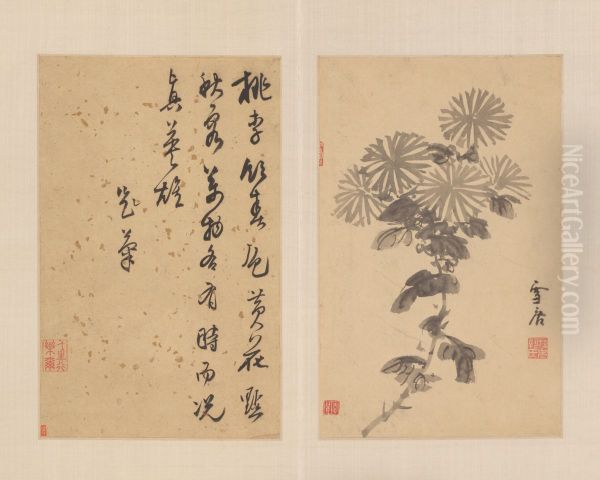 桃李領春色黃花點
秋容萬物各有時而況
真英雄
菊
雪居
NiceArtGallery.com